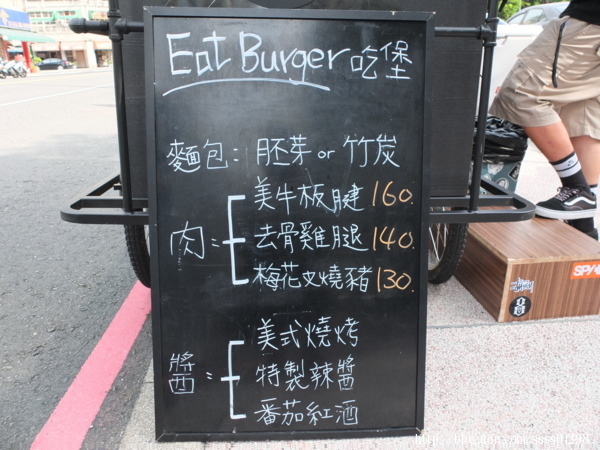 Eat Burger 吃堡
麵包: 胚芽 or 竹炭
肉: 美牛板腱 160.
去骨雞腿 140.
梅花叉燒豬 130.
醬: 美式燒烤
特製辣醬
番茄紅酒
SPY